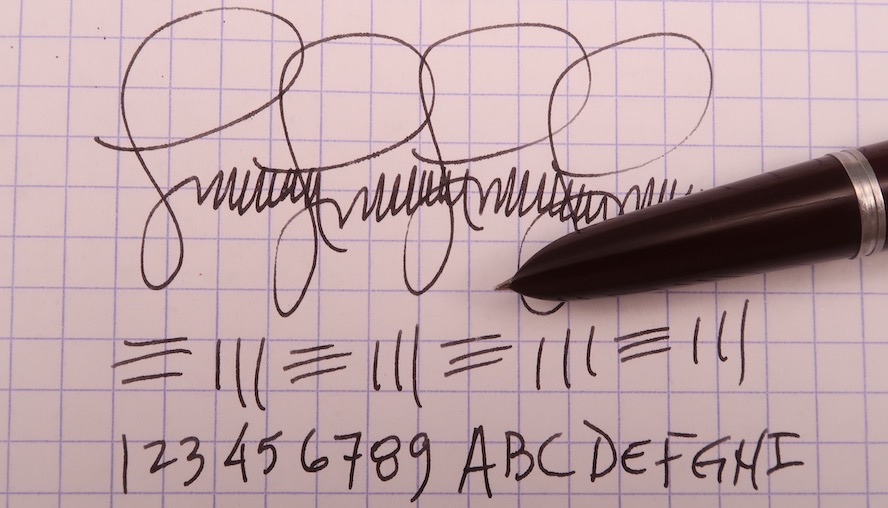 123 45 6789 ABCDEFGHI